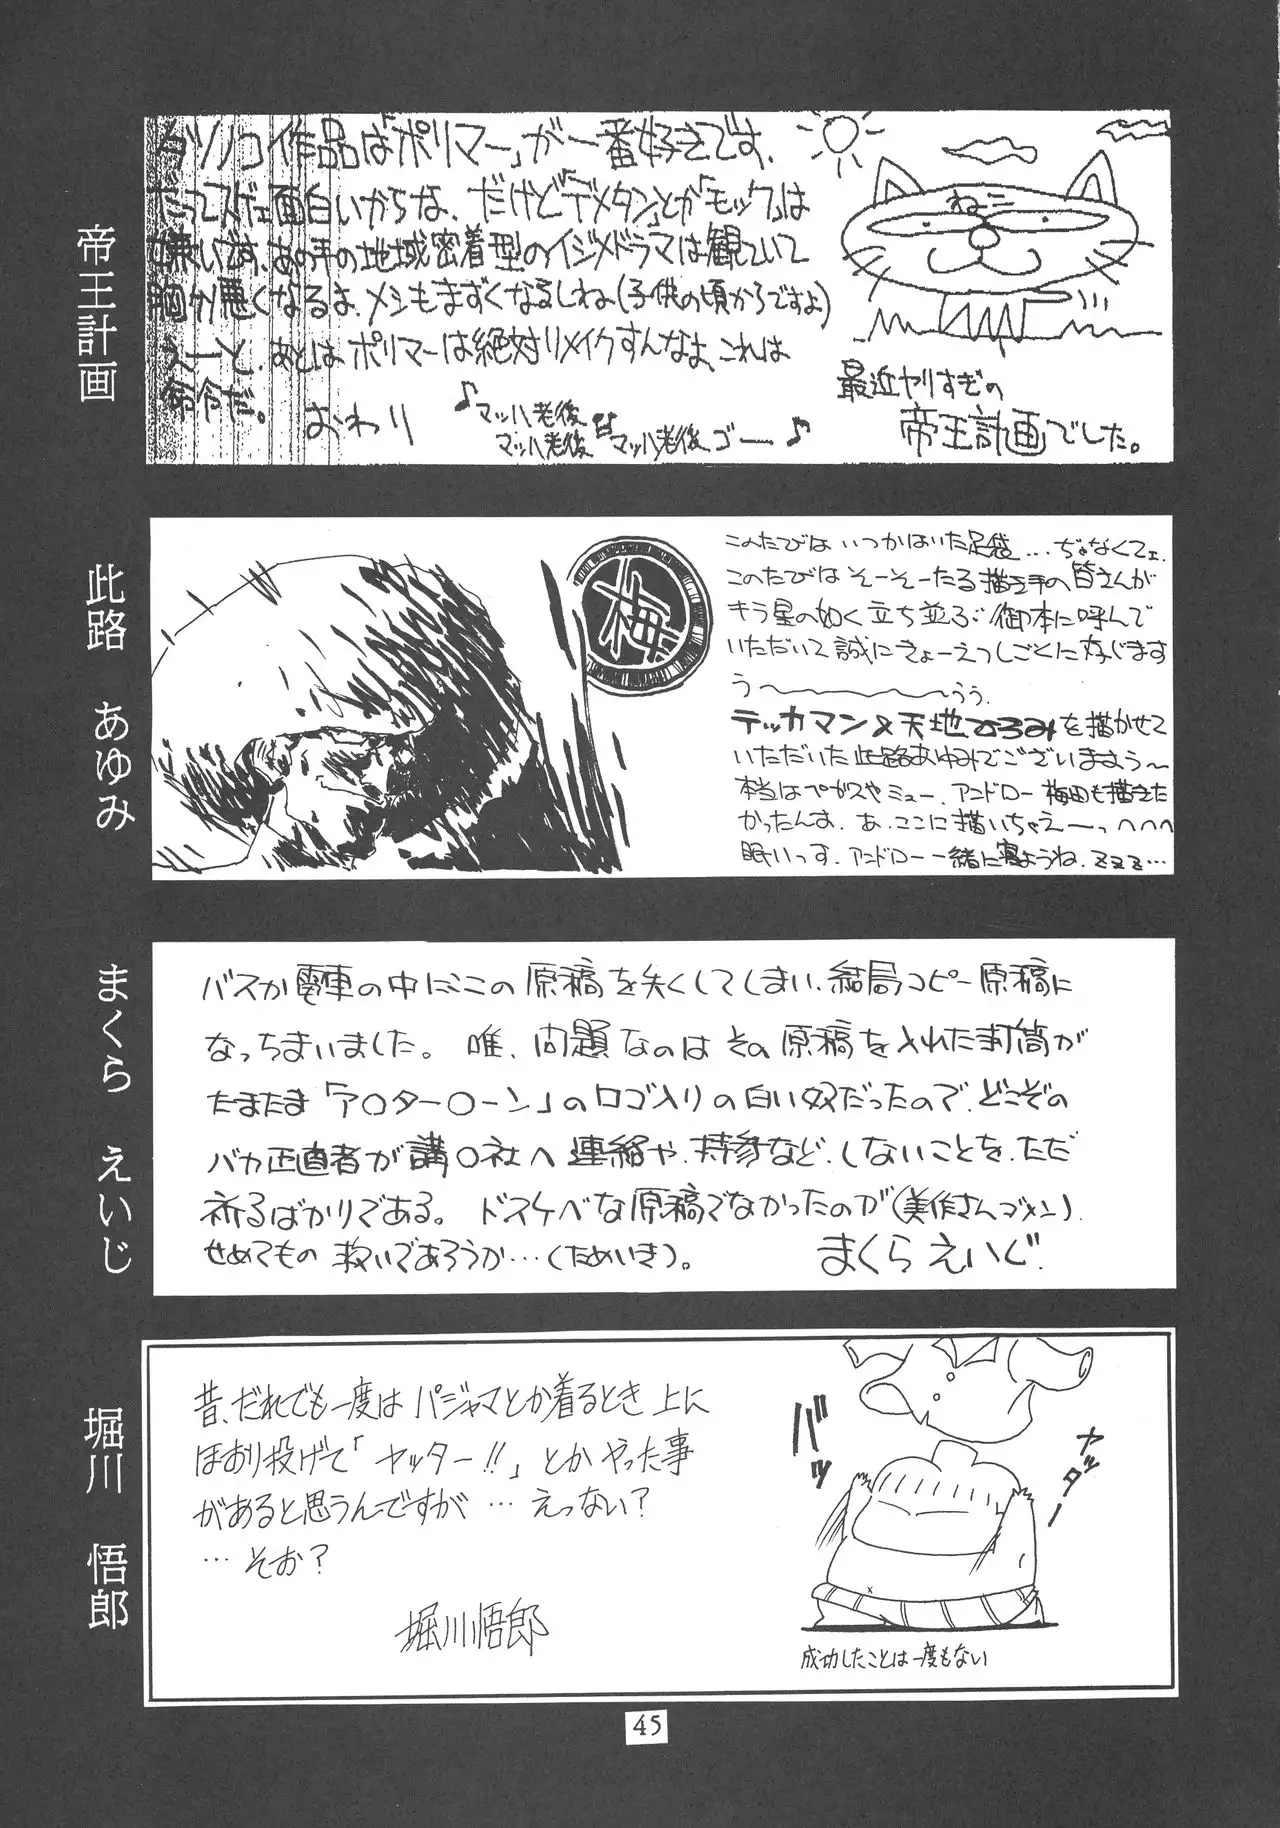 帝王計画
タツノコ作品は「ポリマー」が一番好きです、
だってスゲェ面白いからな、だけど「デメタン」とか「モック」は
嫌いです、あの手の地域密着型のイジメドラマは観ていて
胸が悪くなるよ、メシもまずくなるしね(子供の頃からですよ)
えーと、あとはポリマーは絶対リメイクすんなよ、これは
命令だ。
おわり
♪マッハ老後
マッハ老後
マッハ老後 ゴー♪
ねこ
最近ヤリすぎの
帝王計画でした。
此路 あゆみ
梅
このたびは いつかはいた足袋…ぢゃなくてェ、
このたびは そーそーたる描き手の皆さんが
キラ星の如く立ち並ぶ御本に呼んで
いただいて誠にきょーえつしごくに存じます
う〜〜〜〜〜〜うぅ.
テッカマン×天地ひろみを描かせて
いただいた此路あゆみでございますぅ〜
本当はペガスやミュー、アンドロー梅田も描きた
かったんす、あ、ここに描いちゃえーっへへへ
眠いっす、アンドロー一緒に寝ようね、zzz…
まくら えいじ
バスか電車の中にこの原稿を失くしてしまい、結局コピー原稿に
なっちまいました。唯、問題なのはその原稿を入れた封筒が
たまたま「ア○ター○ーン」のロゴ入りの白い奴だったので、どこぞの
バカ正直者が講○社へ連絡や、持参など、しないことを、ただ
祈るばかりである。ドスケベな原稿でなかったのが(美作さんゴメン)
せめてもの救いであろうか…(ためいき)。
まくらえいじ.
堀川 悟郎
昔、だれでも一度はパジャマとか着るとき上に
ほおり投げて「ヤッター!!」とかやった事
があると思うんですが…えっない?
…そお?
堀川悟郎
バッ
ヤッター!!
成功したことは一度もない
45